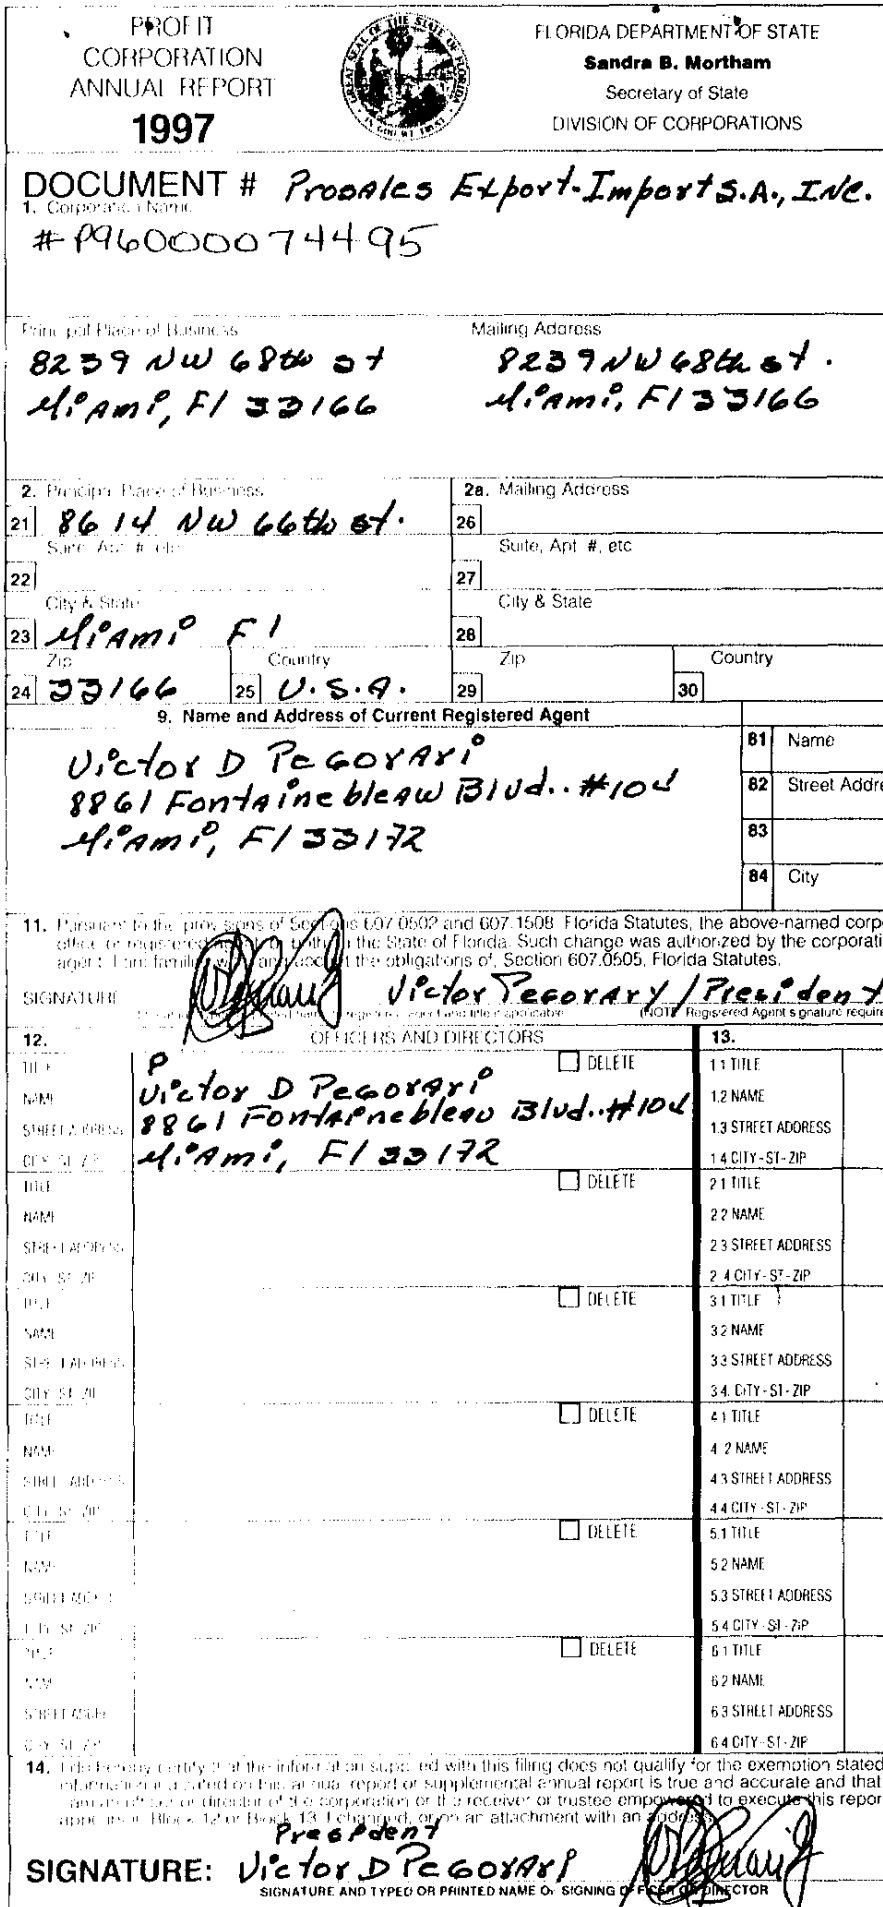 PROFIT
CORPORATION
ANNUAL REPORT
1997
FLORIDA DEPARTMENT OF STATE
Sandra B. Mortham
Secretary of State
DIVISION OF CORPORATIONS
GREAT SEAL OF THE STATE OF FLORIDA
IN GOD WE TRUST
DOCUMENT # Prosales Export-Import S.A., INC.
1. Corporation Name
#P96000074495
Principal Place of Business
8239 NW 68th st
Miami, Fl 33166
Mailing Address
8239 NW 68th st.
Miami, Fl 33166
2. Principal Place of Business
2a. Mailing Address
21 8614 NW 66th st.
26
Suite, Apt. #, etc
Suite, Apt #, etc
22
27
City & State
City & State
23 Miami Fl
28
Zip
Country
Zip
Country
24 33166
25 U.S.A.
29
30
9. Name and Address of Current Registered Agent
Victor D Pegorari
8861 Fontainebleau Blvd.. #104
Miami, Fl 33172
81 Name
82 Street Addre
83
84 City
11. Pursuant to the provisions of Sections 607.0502 and 607.1508, Florida Statutes, the above-named corp
office or registered both in the State of Florida. Such change was authorized by the corporati
agent. I am familiar the obligations of, Section 607.0505, Florida Statutes.
SIGNATURE Victor Pegorary / President
(NOTE Registered Agent signature require
12. OFFICERS AND DIRECTORS
13.
TITLE P DELETE
NAME Victor D Pegorari
STREET ADDRESS 8861 Fontainebleau Blvd.. #104
CITY-ST-ZIP Miami, Fl 33172
1.1 TITLE
1.2 NAME
1.3 STREET ADDRESS
1.4 CITY-ST-ZIP
TITLE DELETE
NAME
STREET ADDRESS
CITY-ST-ZIP
2.1 TITLE
2.2 NAME
2.3 STREET ADDRESS
2.4 CITY-ST-ZIP
TITLE DELETE
NAME
STREET ADDRESS
CITY-ST-ZIP
3.1 TITLE
3.2 NAME
3.3 STREET ADDRESS
3.4. CITY-ST-ZIP
TITLE DELETE
NAME
STREET ADDRESS
CITY-ST-ZIP
4.1 TITLE
4.2 NAME
4.3 STREET ADDRESS
4.4 CITY-ST-ZIP
TITLE DELETE
NAME
STREET ADDRESS
CITY-ST-ZIP
5.1 TITLE
5.2 NAME
5.3 STREET ADDRESS
5.4 CITY-ST-ZIP
TITLE DELETE
NAME
STREET ADDRESS
CITY-ST-ZIP
6.1 TITLE
6.2 NAME
6.3 STREET ADDRESS
6.4 CITY-ST-ZIP
14. I do hereby certify that the information supplied with this filing does not qualify for the exemption stated
information indicated on this annual report or supplemental annual report is true and accurate and that
I am an officer or director of the corporation or the receiver or trustee empowered to execute this repor
appears in Block 12 or Block 13 if changed, or on an attachment with an address
President
SIGNATURE: Victor D Pegorari
SIGNATURE AND TYPED OR PRINTED NAME OF SIGNING OFFICER OR DIRECTOR